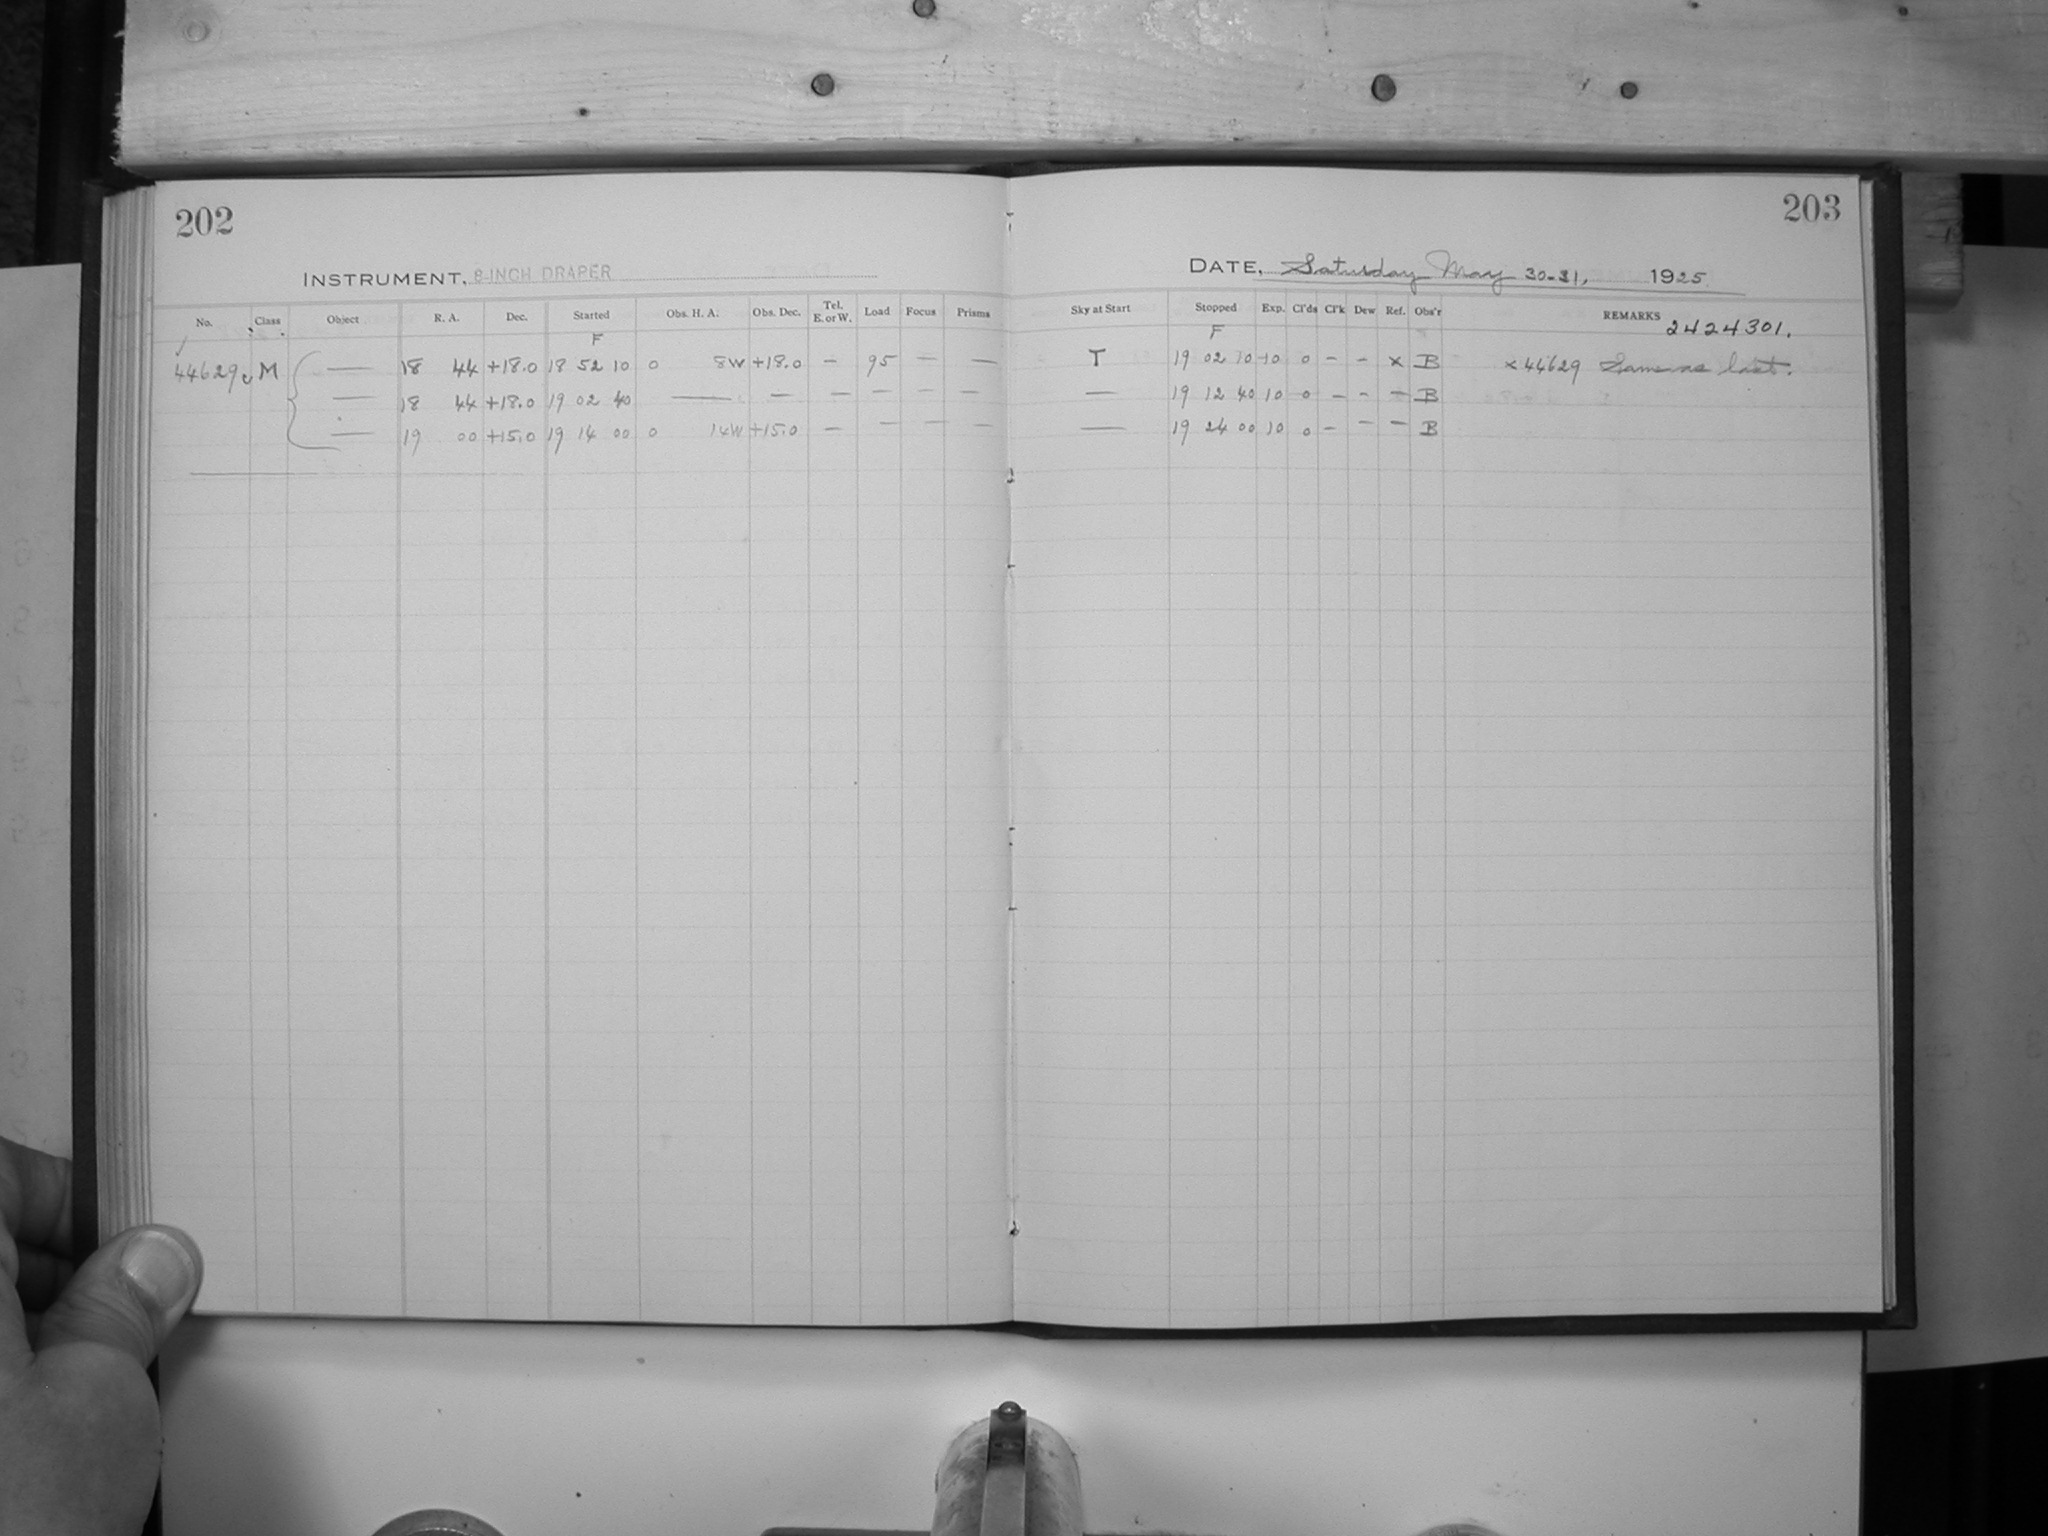 202
INSTRUMENT, 8-INCH DRAPER
No. Class Object R. A. Dec. Started Obs. H. A. Obs. Dec. Tel. E. or W. Load Focus Prisms
F
44629 M — 18 44 +18.0 18 52 10 0 8W +18.0 — 95 — —
— 18 44 +18.0 19 02 40 — — — — — —
— 19 00 +15.0 19 14 00 0 14W +15.0 — — — —
203
DATE, Saturday May 30-31, 1925
Sky at Start Stopped Exp. Cl'ds Cl'k Dew Ref. Obs'r REMARKS 2424301.
F
T 19 02 10 10 0 – – x B x 44629 Same as last.
— 19 12 40 10 0 – – – B
— 19 24 00 10 0 – – – B